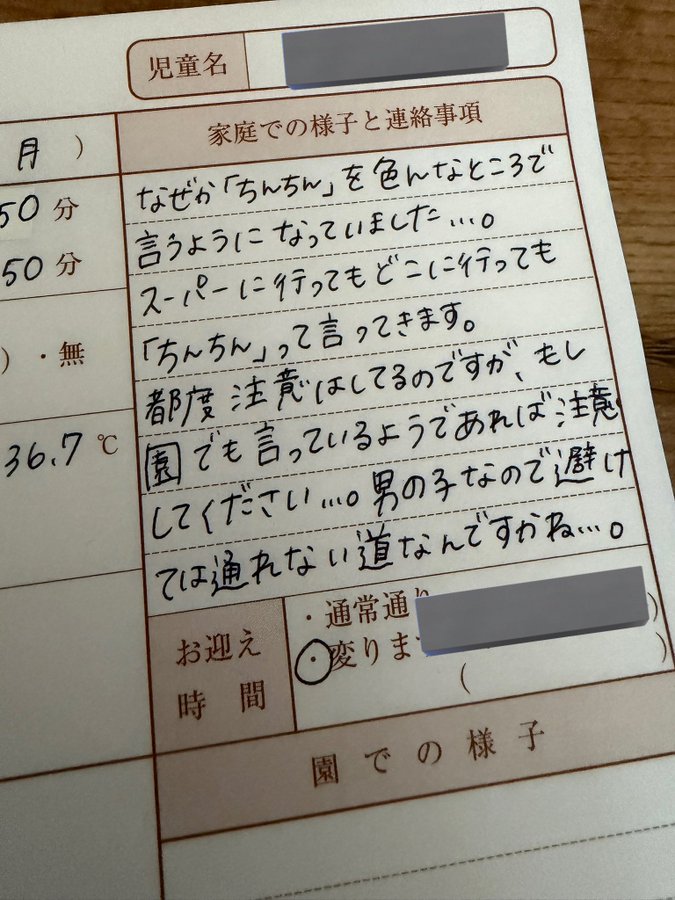 児童名
家庭での様子と連絡事項
月 )
50 分
50 分
) ・無
36.7 ℃
なぜか「ちんちん」を色んなところで
言うようになっていました…。
スーパーに行ってもどこに行っても
「ちんちん」って言ってきます。
都度注意はしてるのですが、もし
園でも言っているようであれば注意
してください…。男の子なので避け
ては通れない道なんですかね…。
お迎え
時間
・通常通り )
・変りま )
(
園での様子